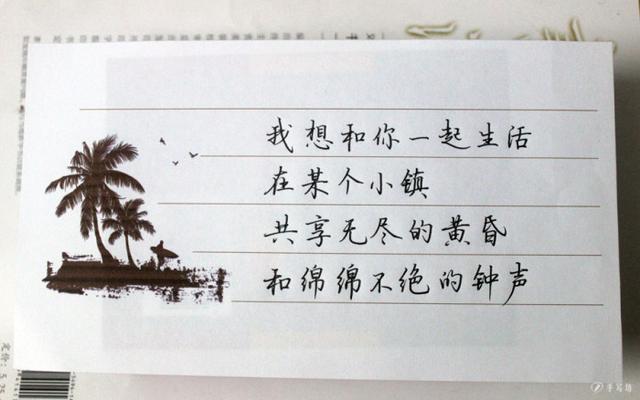 我想和你一起生活
在某个小镇
共享无尽的黄昏
和绵绵不绝的钟声
定价：5.25
手写猫